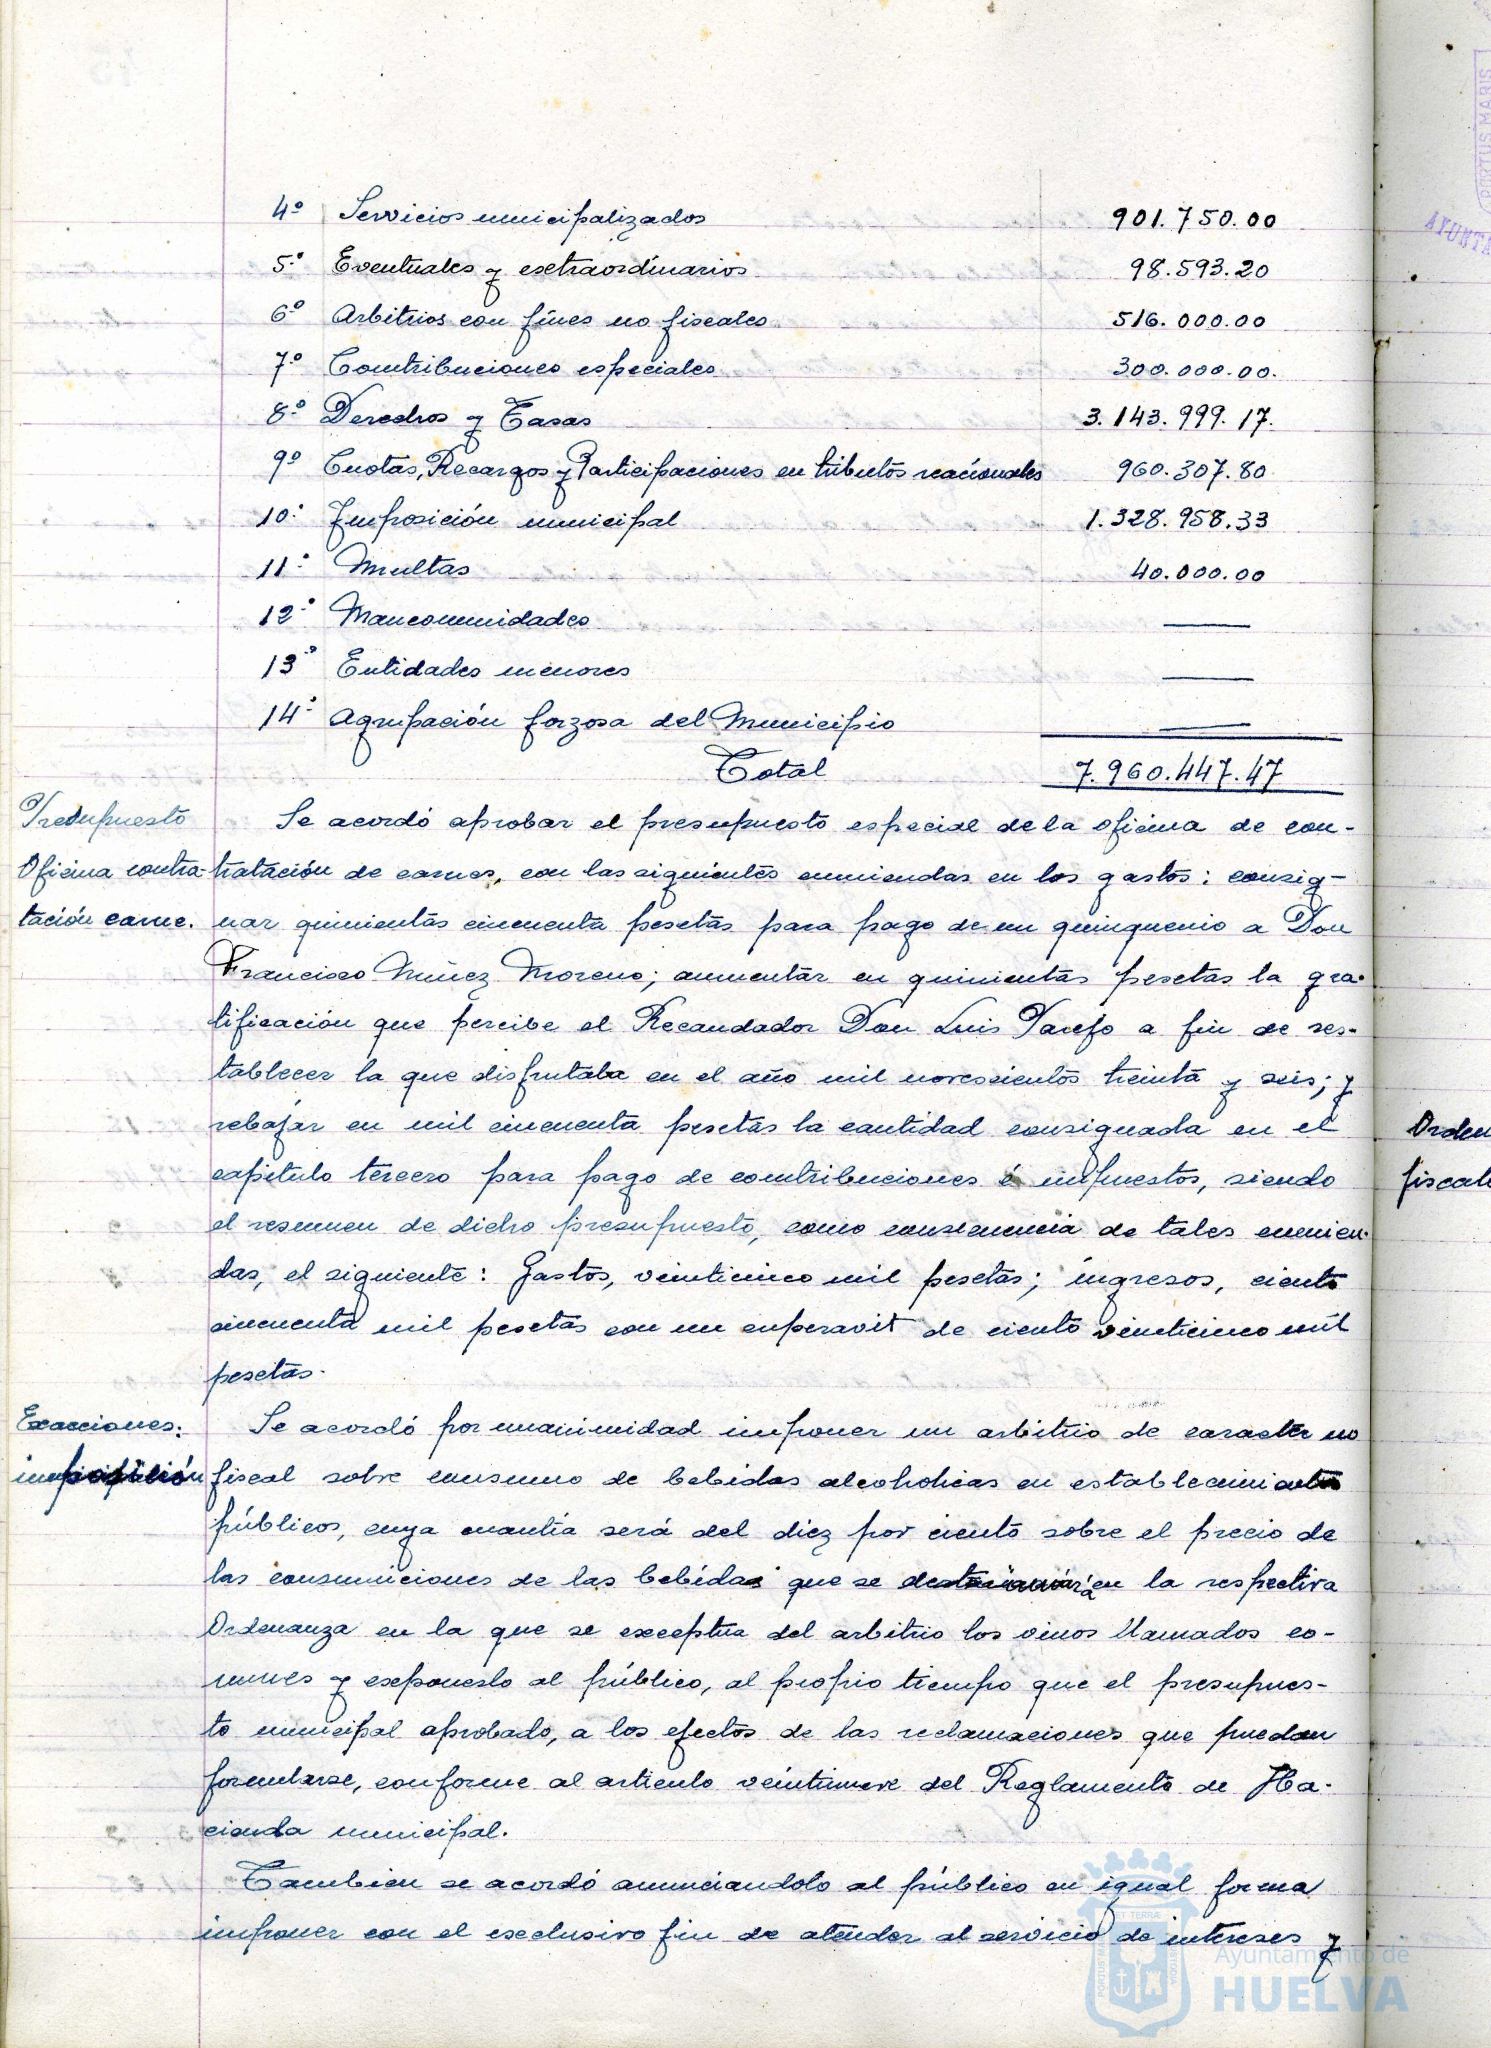 4º Servicios municipalizados 901.750.00
5º Eventuales y extraordinarios 98.593.20
6º Arbitrios con fines no fiscales 516.000.00
7º Contribuciones especiales 300.000.00.
8º Derechos y Tasas 3.143.999.17.
9º Cuotas, Recargos y Participaciones en tributos nacionales 960.307.80
10º Imposición municipal 1.328.958.33
11º Multas 40.000.00
12º Mancomunidades ——
13º Entidades menores ——
14º Agrupación forzosa del Municipio ——
Total 7.960.447.47
Presupuesto
Oficina contra-
tación carne.
Se acordó aprobar el presupuesto especial de la oficina de con-
tratación de carnes, con las siguientes enmiendas en los gastos: consig-
nar quinientas cincuenta pesetas para pago de un quinquenio a Don
Francisco Núñez Moreno; aumentar en quinientas pesetas la gra-
tificación que percibe el Recaudador Don Luis Parejo a fin de res-
tablecer la que disfrutaba en el año mil novescientos treinta y seis; y
rebajar en mil cincuenta pesetas la cantidad consignada en el
capitulo tercero para pago de contribuciones é impuestos, siendo
el resumen de dicho presupuesto, como consecuencia de tales enmien-
das, el siguiente: Gastos, veinticinco mil pesetas; ingresos, ciento
cincuenta mil pesetas con un superavit de ciento veinticinco mil
pesetas.
Exacciones:
imposición
Se acordó por unanimidad imponer un arbitrio de caracter no
fiscal sobre consumo de bebidas alcoholicas en establecimientos
públicos, cuya cuantía será del diez por ciento sobre el precio de
las consumiciones de las bebidas que se en la respectiva
Ordenanza en la que se exceptua del arbitrio los vinos llamados co-
munes y exponerlo al público, al propio tiempo que el presupues-
to municipal aprobado, a los efectos de las reclamaciones que puedan
formularse, conforme al articulo del Reglamento de Ha-
cienda municipal.
Tambien se acordó anunciandolo al público en igual forma
imponer con el exclusivo fin de atender al servicio de intereses y
Orden
fiscal
PORTUS MARIS
AYUNTA
Ayuntamiento de
HUELVA